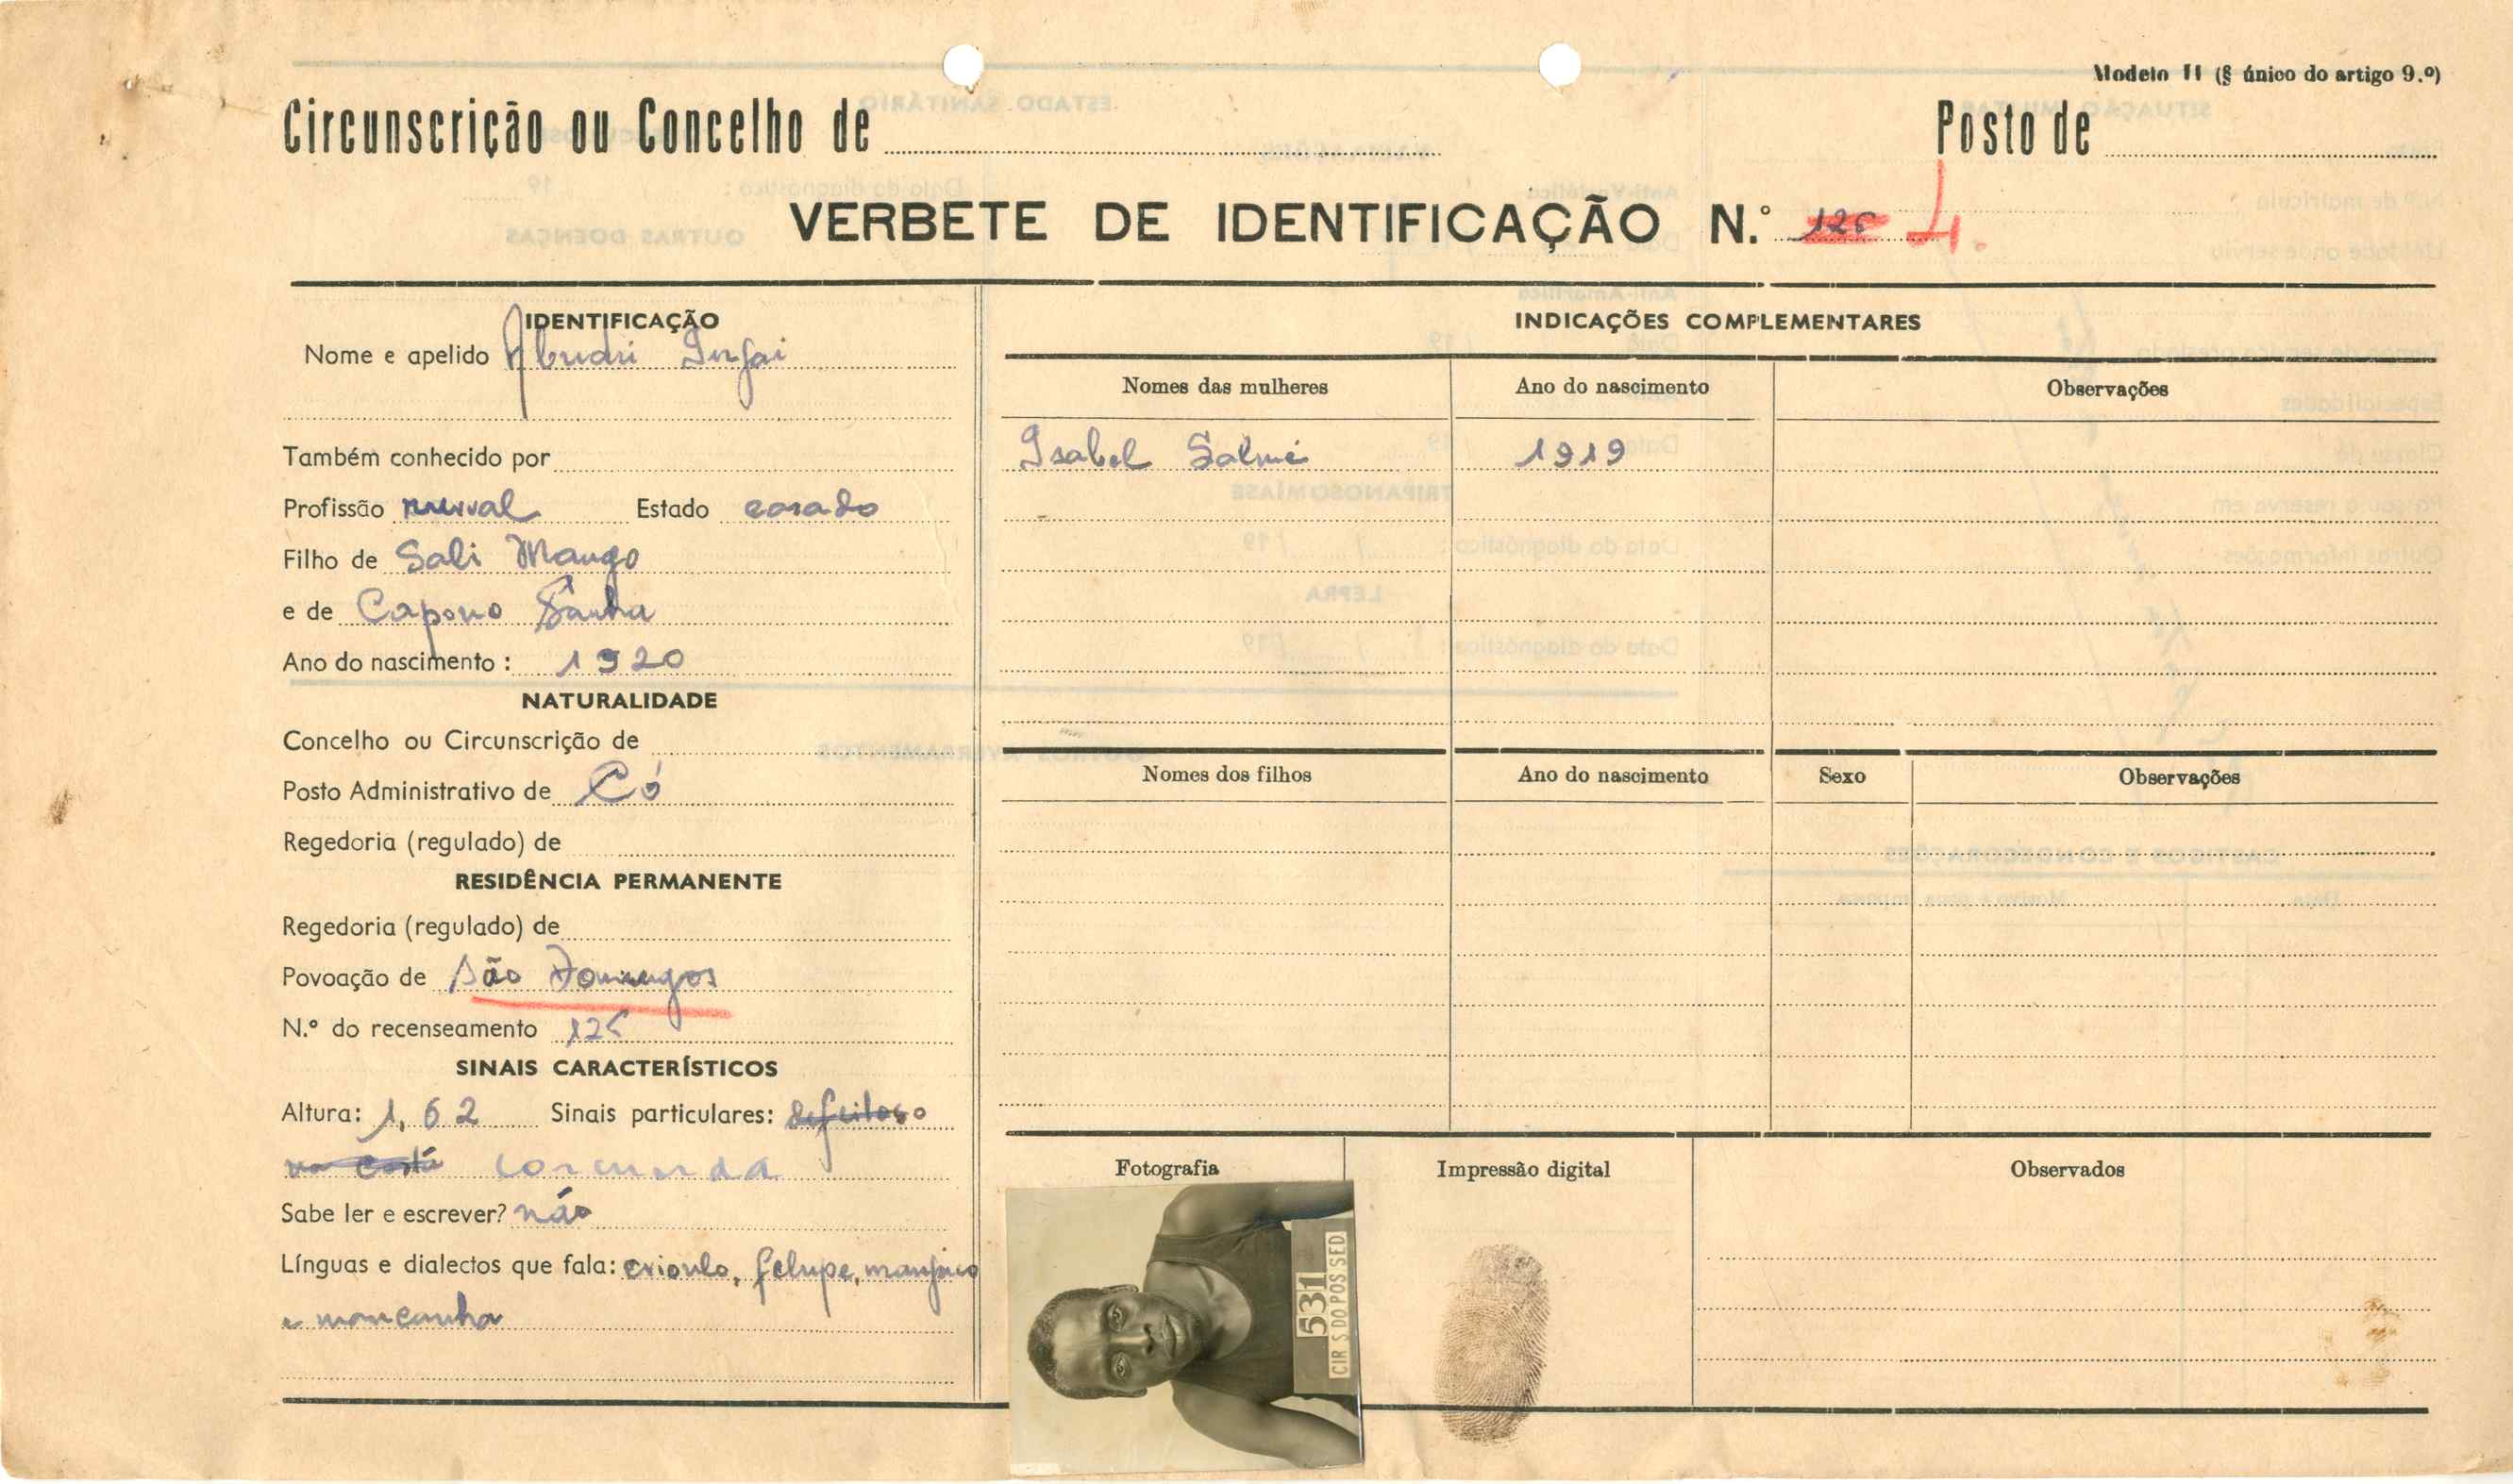 Modelo II (§ único do artigo 9.º)
Circunscrição ou Concelho de
Posto de
VERBETE DE IDENTIFICAÇÃO N.º 126 4.
IDENTIFICAÇÃO
Nome e apelido
Também conhecido por
Profissão rural Estado casado
Filho de Sali Mango
e de Capono Sanha
Ano do nascimento: 1920
NATURALIDADE
Concelho ou Circunscrição de
Posto Administrativo de Có
Regedoria (regulado) de
RESIDÊNCIA PERMANENTE
Regedoria (regulado) de
Povoação de São Domingos
N.º do recenseamento 126
SINAIS CARACTERÍSTICOS
Altura: 1,62 Sinais particulares: defeituoso
na costa corcunda
Sabe ler e escrever? não
Línguas e dialectos que fala: crioulo, felupe, manjaco
e mancanha
INDICAÇÕES COMPLEMENTARES
Nomes das mulheres Ano do nascimento Observações
Isabel Salmé 1919
Nomes dos filhos Ano do nascimento Sexo Observações
Fotografia Impressão digital Observados
531
CIR S DO POS SED